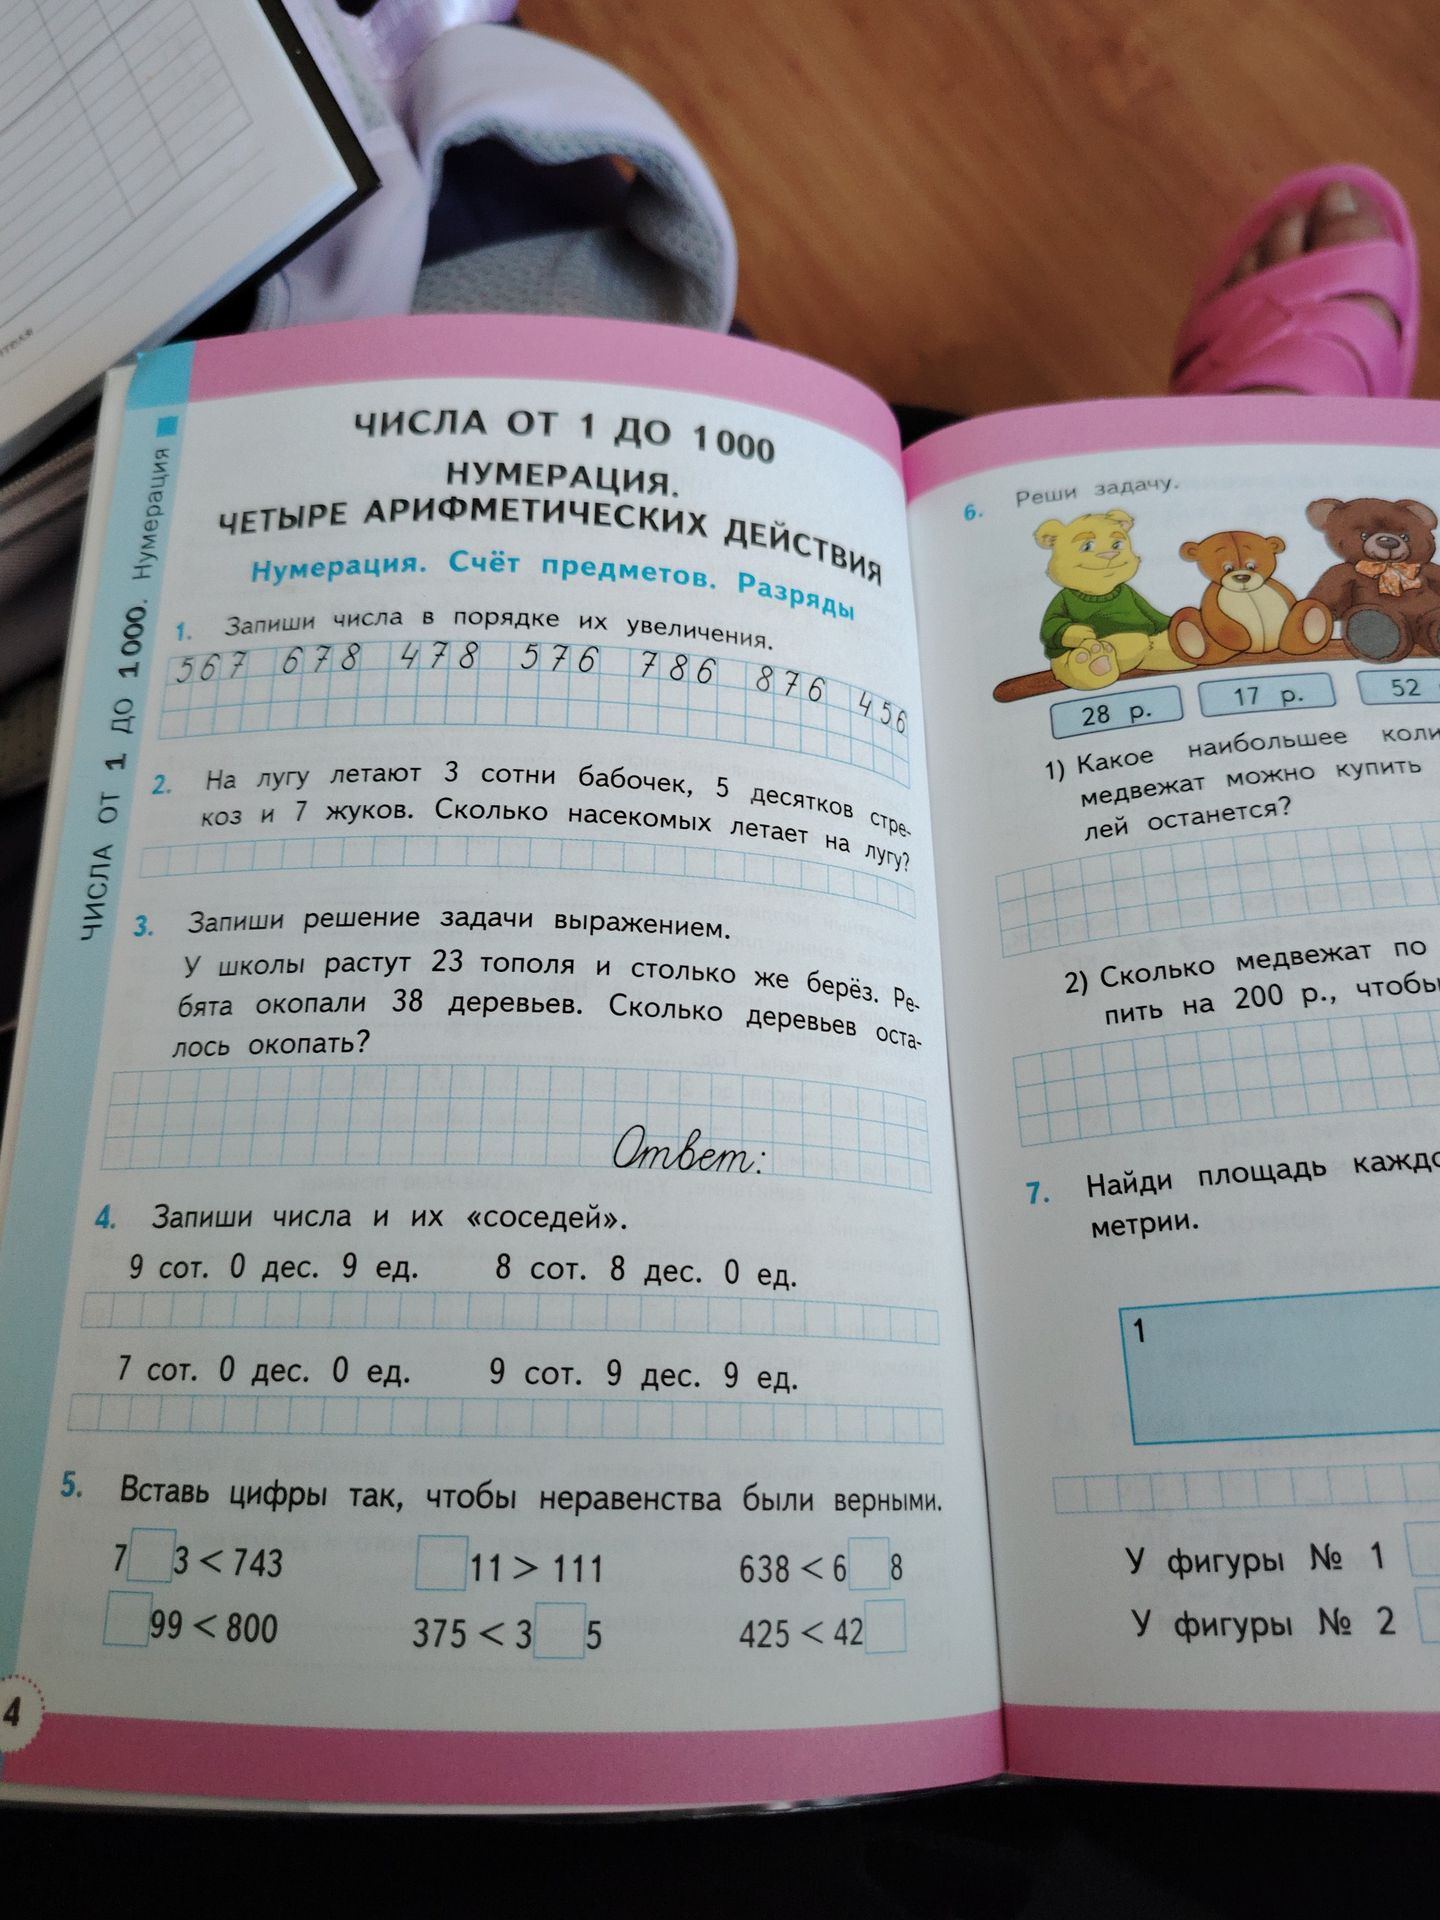 ЧИСЛА ОТ 1 ДО 1000. Нумерация
ЧИСЛА ОТ 1 ДО 1000
НУМЕРАЦИЯ.
ЧЕТЫРЕ АРИФМЕТИЧЕСКИХ ДЕЙСТВИЯ
Нумерация. Счёт предметов. Разряды
1. Запиши числа в порядке их увеличения.
567 678 478 576 786 876 456
2. На лугу летают 3 сотни бабочек, 5 десятков стре-
коз и 7 жуков. Сколько насекомых летает на лугу?
3. Запиши решение задачи выражением.
У школы растут 23 тополя и столько же берёз. Ре-
бята окопали 38 деревьев. Сколько деревьев оста-
лось окопать?
Ответ:
4. Запиши числа и их «соседей».
9 сот. 0 дес. 9 ед. 8 сот. 8 дес. 0 ед.
7 сот. 0 дес. 0 ед. 9 сот. 9 дес. 9 ед.
5. Вставь цифры так, чтобы неравенства были верными.
7 3 < 743 11 > 111 638 < 6 8
99 < 800 375 < 3 5 425 < 42
4
6. Реши задачу.
28 р. 17 р. 52
1) Какое наибольшее коли
медвежат можно купить
лей останется?
2) Сколько медвежат по
пить на 200 р., чтобы
7. Найди площадь каждо
метрии.
1
У фигуры № 1
У фигуры № 2